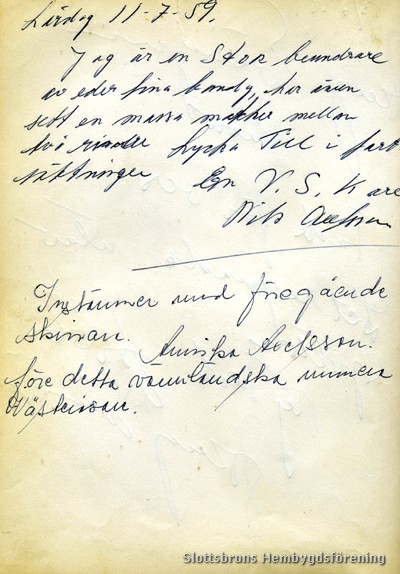 Lördag 11-7-59.
Jag är en Stor beundrare
av eder fina bandy, har även
sett en massa matcher mellan
två Lycka Till i fort
sättningen En V. S. Kare
Nils Axelsson
Instämmer med föregående
skrivare.
Annika Axelsson.
före detta värmländska numera
Västeråsare.
Slottsbrons Hembygdsförening